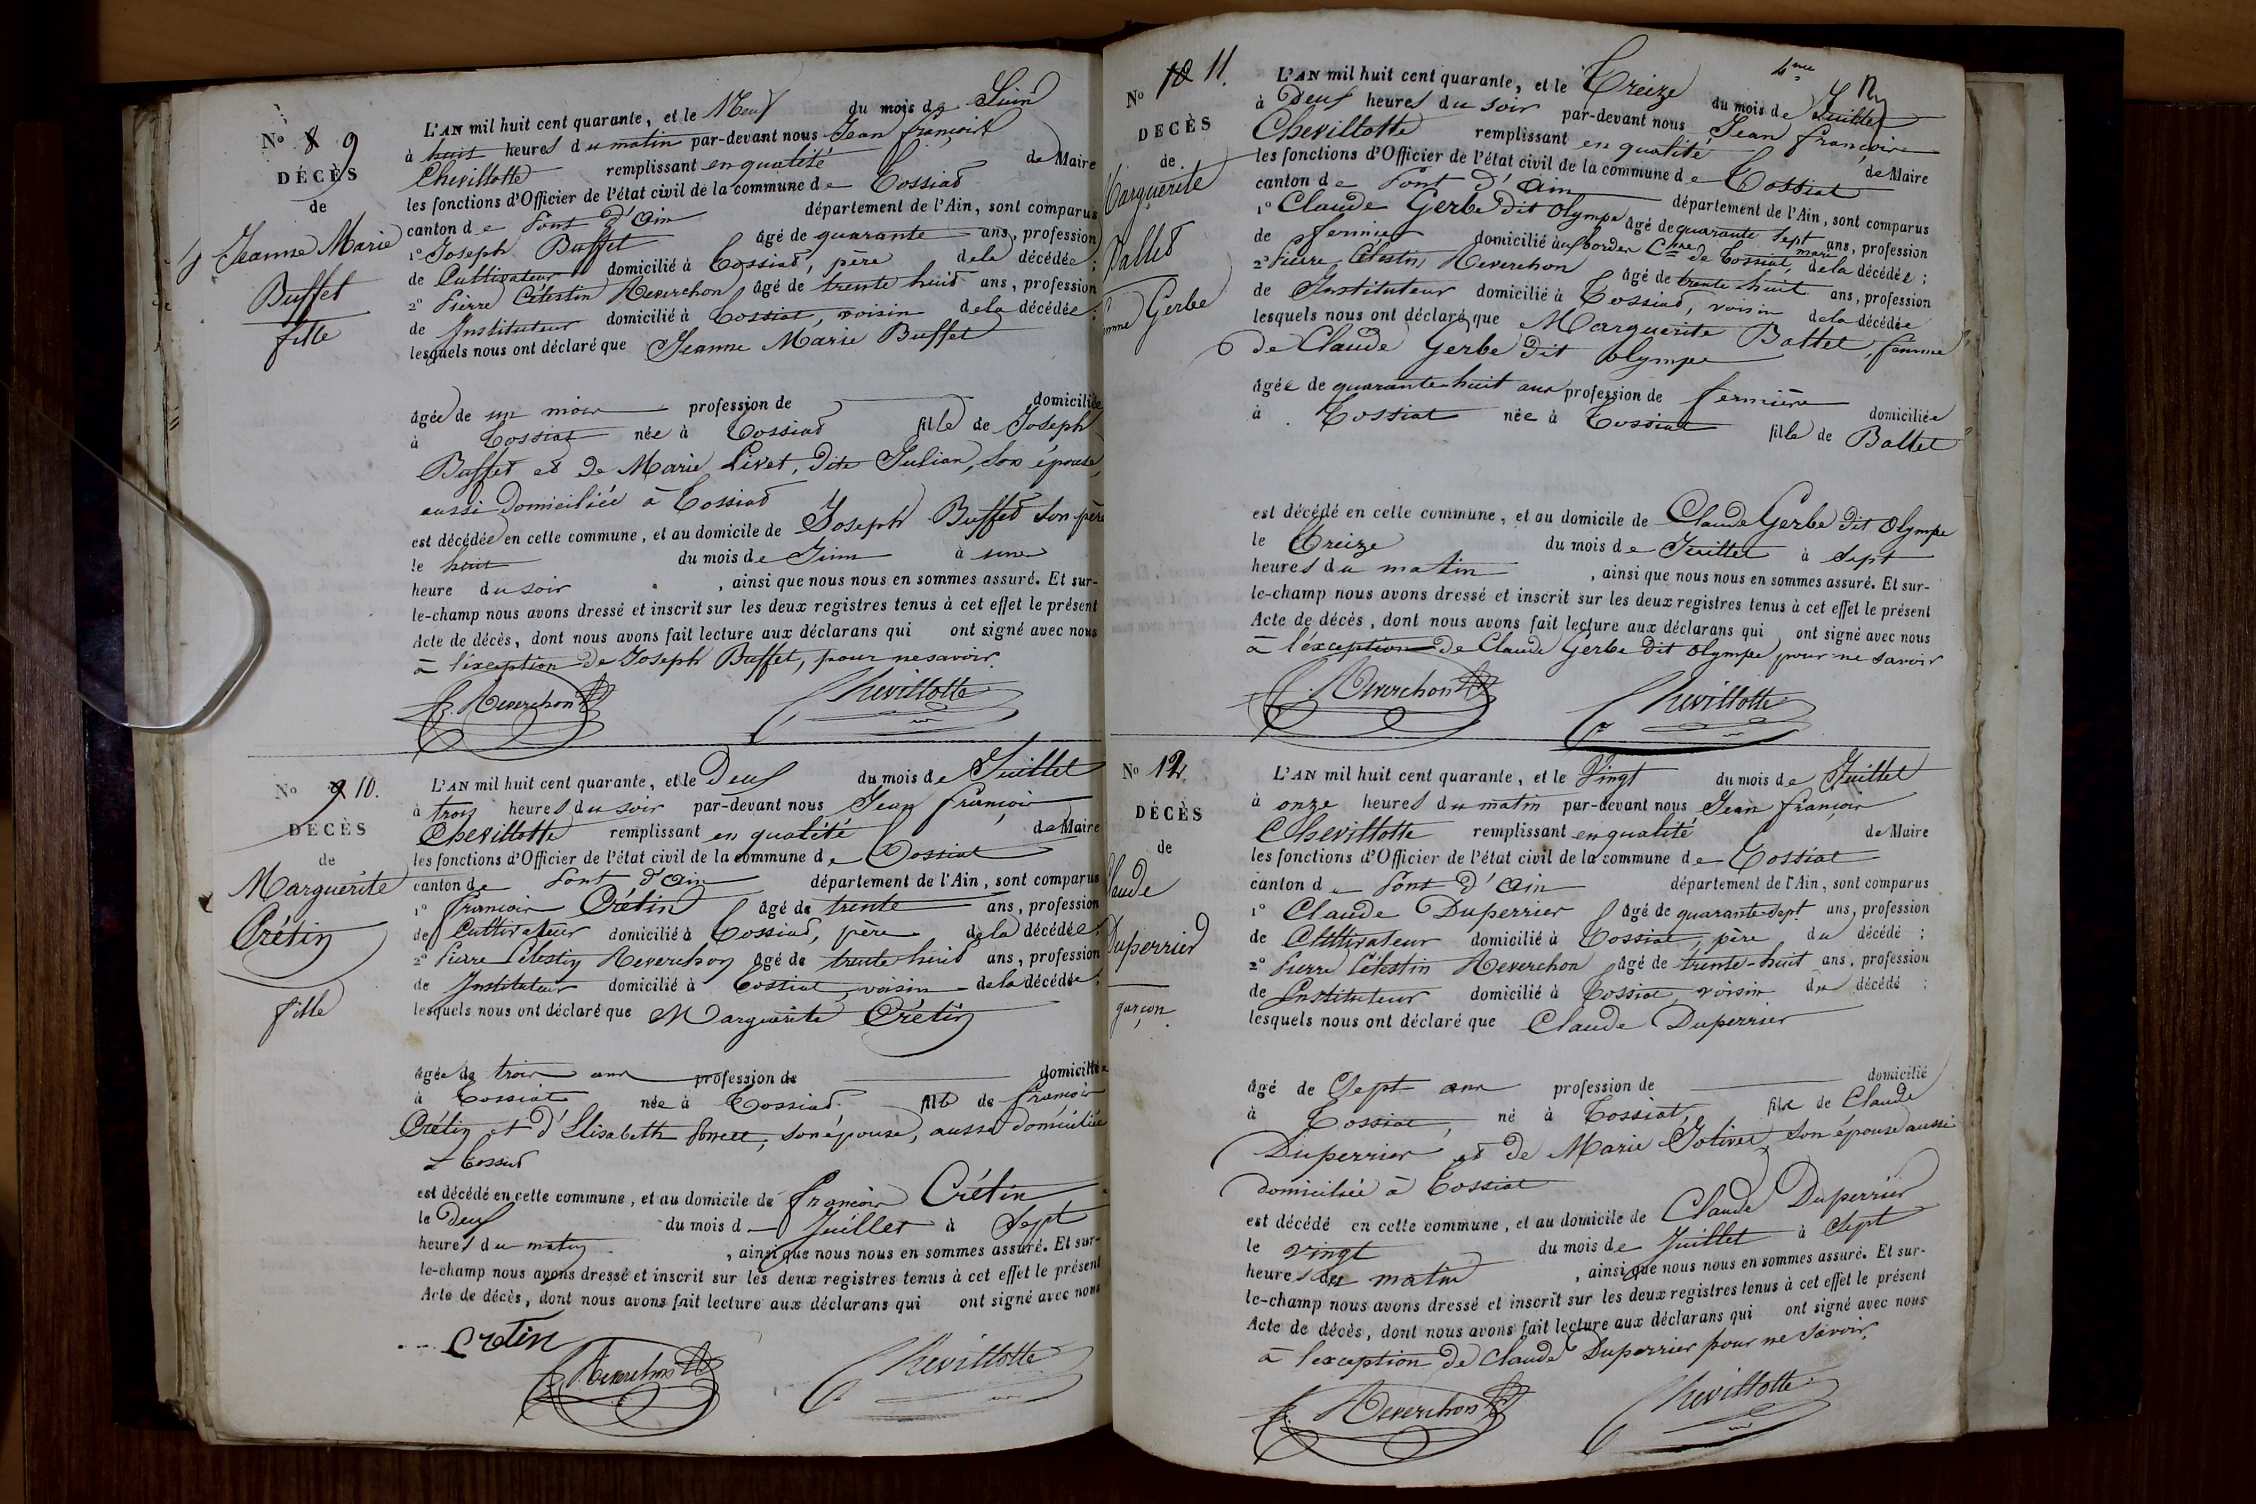 No 8 9
DÉCÈS
de
Jeanne Marie
Buffet
fille
L'AN mil huit cent quarante, et le Neuf du mois de Juin
à huit heures du matin par-devant nous Jean françois
Chevillotte remplissant en qualité de Maire
les fonctions d'Officier de l'état civil de la commune de Tossiat
canton de Pont d'Ain département de l'Ain, sont comparus
1° Joseph Buffet âgé de quarante ans, profession
de Cultivateur domicilié à Tossiat, père de la décédée ;
2° Pierre Célestin Reverchon âgé de trente huit ans, profession
de Instituteur domicilié à Tossiat, voisin de la décédée ;
lesquels nous ont déclaré que Jeanne Marie Buffet
âgée de un mois profession de domiciliée
à Tossiat née à Tossiat fille de Joseph
Buffet et de Marie Livet, dite Julian, son épouse,
aussi domiciliée à Tossiat
est décédée en cette commune, et au domicile de Joseph Buffet son père
le huit du mois de Juin à une
heure du soir , ainsi que nous nous en sommes assuré. Et sur-
le-champ nous avons dressé et inscrit sur les deux registres tenus à cet effet le présent
Acte de décès, dont nous avons fait lecture aux déclarans qui ont signé avec nous
à l'éxception de Joseph Buffet, pour ne savoir.
Reverchon Chevillotte
No 9 10.
DÉCÈS
de
Marguérite
Crétin
fille
L'AN mil huit cent quarante, et le Deux du mois de Juillet
à trois heures du soir par-devant nous Jean françois
Chevillotte remplissant en qualité de Maire
les fonctions d'Officier de l'état civil de la commune de Tossiat
canton de Pont d'Ain département de l'Ain, sont comparus
1° françois Crétin âgé de trente ans, profession
de Cultivateur domicilié à Tossiat, père de la décédée ;
2° Pierre Célestin Reverchon âgé de trente huit ans, profession
de Instituteur domicilié à Tossiat, voisin de la décédée ;
lesquels nous ont déclaré que Marguérite Crétin
âgée de trois ans profession de domiciliée
à Tossiat née à Tossiat fille de françois
Crétin et d'Elisabeth son épouse, aussi domiciliée
à Tossiat
est décédé en cette commune, et au domicile de françois Crétin
le Deux du mois d Juillet à Sept
heures du matin , ainsi que nous nous en sommes assuré. Et sur-
le-champ nous avons dressé et inscrit sur les deux registres tenus à cet effet le présent
Acte de décès, dont nous avons fait lecture aux déclarans qui ont signé avec nous
cretin
Reverchon Chevillotte
No 10 11.
DÉCÈS
de
Marguerite
Ballet
femme Gerbe
L'AN mil huit cent quarante, et le Treize du mois de Juillet
à Deux heures du soir par-devant nous Jean françois
Chevillotte remplissant en qualité de Maire
les fonctions d'Officier de l'état civil de la commune de Tossiat
canton de Pont d'Ain département de l'Ain, sont comparus
1° Claude Gerbe dit Olympe âgé de quarante sept ans, profession
de fermier domicilié aux bordes Cne de Tossiat, mari de la décédée ;
2° Pierre Célestin Reverchon âgé de trente huit ans, profession
de Instituteur domicilié à Tossiat, voisin de la décédée
lesquels nous ont déclaré que Marguerite Ballet, femme
de Claude Gerbe dit Olympe
âgée de quarante huit ans profession de fermière domiciliée
à Tossiat née à Tossiat fille de Ballet
est décédé en cette commune, et au domicile de Claude Gerbe dit Olympe
le Treize du mois de Juillet à Sept
heures du matin , ainsi que nous nous en sommes assuré. Et sur-
le-champ nous avons dressé et inscrit sur les deux registres tenus à cet effet le présent
Acte de décès, dont nous avons fait lecture aux déclarans qui ont signé avec nous
à l'éxception de Claude Gerbe dit Olympe pour ne savoir
Reverchon Chevillotte
No 12.
DÉCÈS
de
Claude
Duperrier
garçon
L'AN mil huit cent quarante, et le Vingt du mois de Juillet
à onze heures du matin par-devant nous Jean françois
Chevillotte remplissant en qualité de Maire
les fonctions d'Officier de l'état civil de la commune de Tossiat
canton de Pont d'Ain département de l'Ain, sont comparus
1° Claude Duperrier âgé de quarante sept ans, profession
de Cultivateur domicilié à Tossiat, père du décédé ;
2° Pierre Célestin Reverchon âgé de trente-huit ans, profession
de Instituteur domicilié à Tossiat, voisin du décédé ;
lesquels nous ont déclaré que Claude Duperrier
âgé de Sept ans profession de domicilié
à Tossiat, né à Tossiat, fils de Claude
Duperrier et de Marie Jolivet, son épouse aussi
domiciliée à Tossiat
est décédé en cette commune, et au domicile de Claude Duperrier
le vingt du mois de Juillet à Sept
heures du matin , ainsi que nous nous en sommes assuré. Et sur-
le-champ nous avons dressé et inscrit sur les deux registres tenus à cet effet le présent
Acte de décès, dont nous avons fait lecture aux déclarans qui ont signé avec nous
à l'exception de Claude Duperrier pour ne savoir.
Reverchon Chevillotte